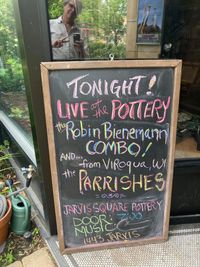 TONIGHT!
LIVE at the POTTERY
the Robin Bienemann
COMBO!
AND...
from VIROQUA, WI
the PARRISHES
JARVIS SQUARE POTTERY
DOORS 7:00
MUSIC
1443 JARVIS